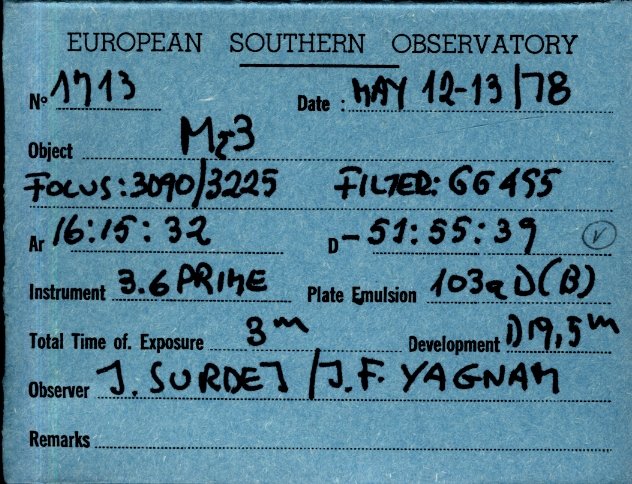 EUROPEAN SOUTHERN OBSERVATORY
Nº 1713 Date : MAY 12-13/78
Object Mz3
FOCUS: 3090/3225 FILTER: GG 455
Ar 16:15:32 D -51:55:39 V
Instrument 3.6 PRIME Plate Emulsion 103a D(B)
Total Time of. Exposure 3m Development D19,5m
Observer J. SURDEJ / J.F. YAGNAM
Remarks